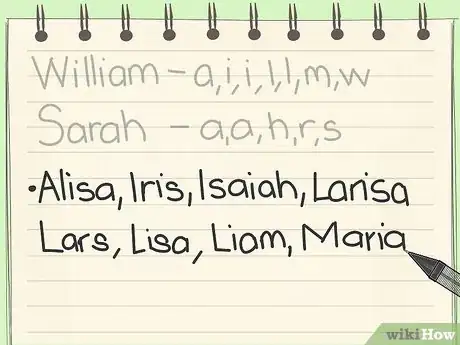 William – a, i, i, l, l, m, w
Sarah – a, a, h, r, s
• Alisa, Iris, Isaiah, Larisa
Lars, Lisa, Liam, Maria
wikiHow